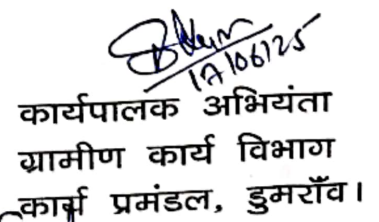 17/06/25
कार्यपालक अभियंता
ग्रामीण कार्य विभाग
कार्य प्रमंडल, डुमराँव।